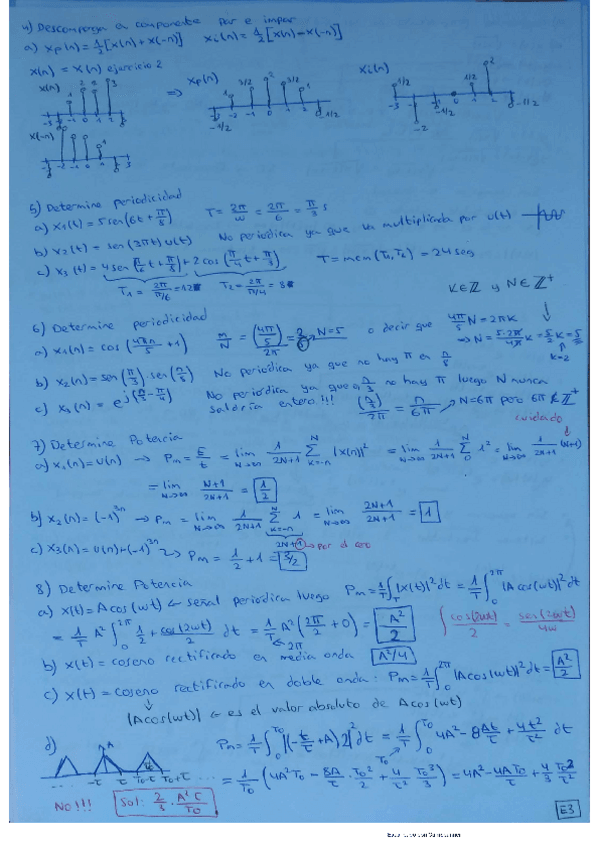 4) Descomponga a componente par e impar
a) xp(n) = 1/2 [x(n) + x(-n)]    xi(n) = 1/2 [x(n) - x(-n)]
x(n) = x(n) ejercicio 2
x(n)    ⇒    xp(n)    xi(n)
x(-n)
5) Determine periodicidad
a) x1(t) = 5 sen(6t + π/8)    T = 2π/w = 2π/6 = π/3 s
b) x2(t) = sen(2πt) u(t)    No periódica ya que va multiplicada por u(t)
c) x3(t) = 4 sen(π/2 t + π/5) + 2 cos(π/4 t + π/3)    T = mcm(T1, T2) = 24 seg
T1 = 2π/π/6 = 12    T2 = 2π/π/4 = 8
K ∈ Z y N ∈ Z⁺
6) Determine periodicidad
a) x1(n) = cos(4πn/5 + 1)    m/N = (4π/5)/2π = 2/5 → N=5    o decir que 4π/5 N = 2πK
⇒ N = 5·2π/4π K = 5/2 K = 5
K=2
b) x2(n) = sen(π/3)·sen(n/5)    No periódica ya que no hay π en n/5
c) x3(n) = e^j(n/3 - π/4)    No periódica ya que n/3 no hay π luego N nunca
saldría entero!!!    (n/3)/2π = n/6π → N=6π pero 6π ∉ Z⁺
cuidado
7) Determine Potencia
a) x1(n) = u(n) → Pm = E/t = lim N→∞ 1/2N+1 Σ k=-n N |x(n)|² = lim N→∞ 1/2N+1 Σ 0 N 1² = lim N→∞ 1/2N+1 (N+1)
= lim N→∞ N+1/2N+1 = 1/2
b) x2(n) = (-1)^3n → Pm = lim N→∞ 1/2N+1 Σ k=-n N 1 = lim N→∞ 2N+1/2N+1 = 1
2N+1 → por el cero
c) x3(n) = u(n) + (-1)^3n → Pm = 1/2 + 1 = 3/2
8) Determine Potencia
a) x(t) = A cos(wt) ← señal periódica luego Pm = 1/T ∫T |x(t)|² dt = 1/T ∫0 2π |A cos(wt)|² dt
= 1/T A² ∫0 2π 1/2 + cos(2wt)/2 dt = 1/T A² (2π/2 + 0) = A²/2    ∫ cos(2wt)/2 = sen(2wt)/4w
2π
b) x(t) = coseno rectificado en media onda    A²/4
c) x(t) = coseno rectificado en doble onda: Pm = 1/T ∫0 2π |A cos(wt)|² dt = A²/2
|A cos(wt)| ← es el valor absoluto de A cos(wt)
d)    Pm = 1/T ∫0 T0 |(-t/τ + A) 2|² dt = 1/T ∫0 T0 4A² - 8At/τ + 4t²/τ² dt
A    -τ    τ    T0-τ    T0    T0+τ
= 1/T0 (4A² T0 - 8A/τ · T0²/2 + 4/τ² · T0³/3) = 4A² - 4A T0/τ + 4/3 T0²/τ²
No!!!    Sol: 2/3 · A² τ/T0
E3
Escaneado con CamScanner